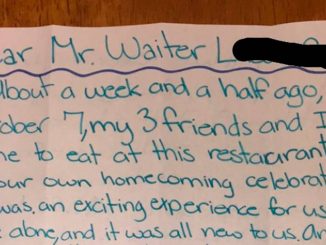 ar Mr. Waiter L
About a week and a half ago,
tober 7, my 3 friends and I
me to eat at this restaurant
our own homecoming celebrat
was an exciting experience for us
alone, and it was all new to us. An